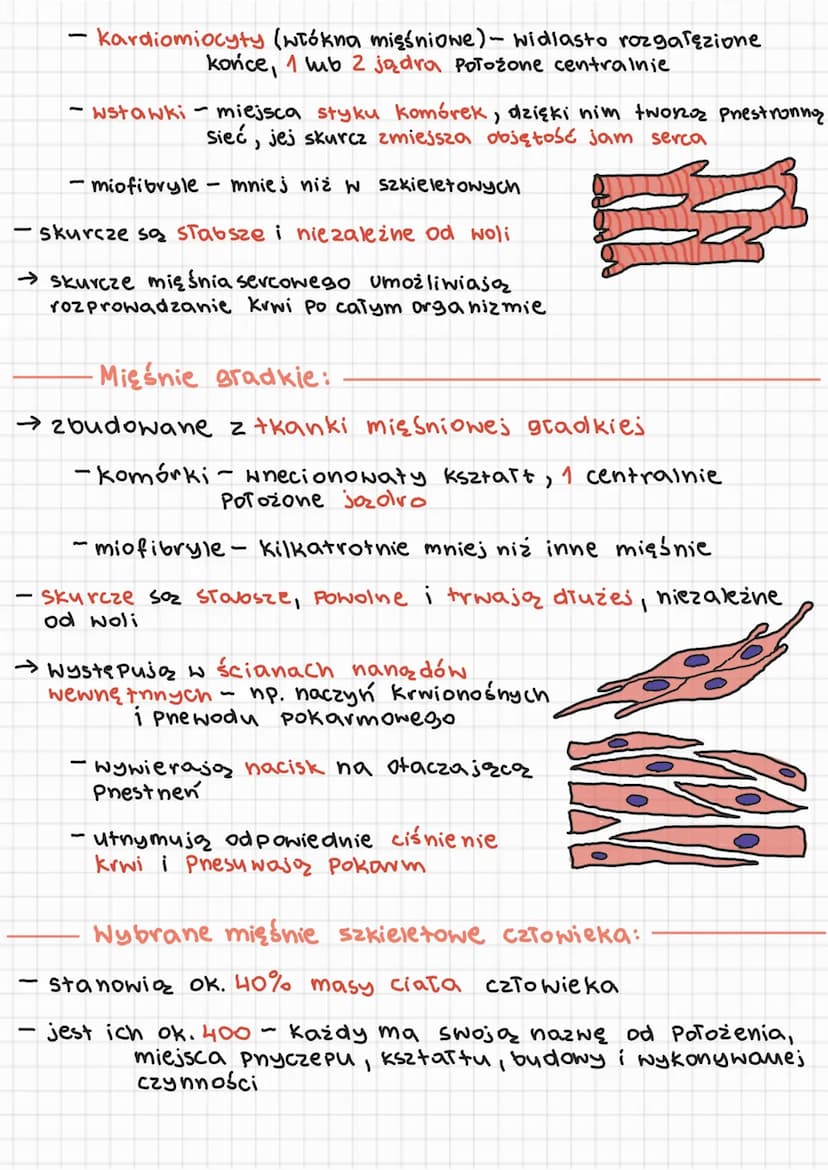 - kardiomiocyty (włókna mięśniowe) - widlasto rozgałęzione
końce, 1 lub 2 jądra położone centralnie
- wstawki - miejsca styku komórek, dzięki nim tworzą przestronną
sieć, jej skurcz zmiejsza objętość jam serca
- miofibryle - mniej niż w szkieletowych
- skurcze są słabsze i niezależne od woli
→ skurcze mięśnia sercowego umożliwiają
rozprowadzanie krwi po całym organizmie
Mięśnie gładkie:
→ zbudowane z tkanki mięśniowej gładkiej
- komórki - wrzecionowaty kształt, 1 centralnie
położone jądro
- miofibryle - kilkatrotnie mniej niż inne mięśnie
- skurcze są słabsze, powolne i trwają dłużej, niezależne
od woli
→ występują w ścianach narządów
wewnętrznych - np. naczyń krwionośnych
i przewodu pokarmowego
- wywierają nacisk na otaczającą
przestrzeń
- utrzymują odpowiednie ciśnienie
krwi i przesuwają pokarm
Wybrane mięśnie szkieletowe człowieka:
- stanowią ok. 40% masy ciała człowieka
- jest ich ok. 400 - każdy ma swoją nazwę od położenia,
miejsca przyczepu, kształtu, budowy i wykonywanej
czynności